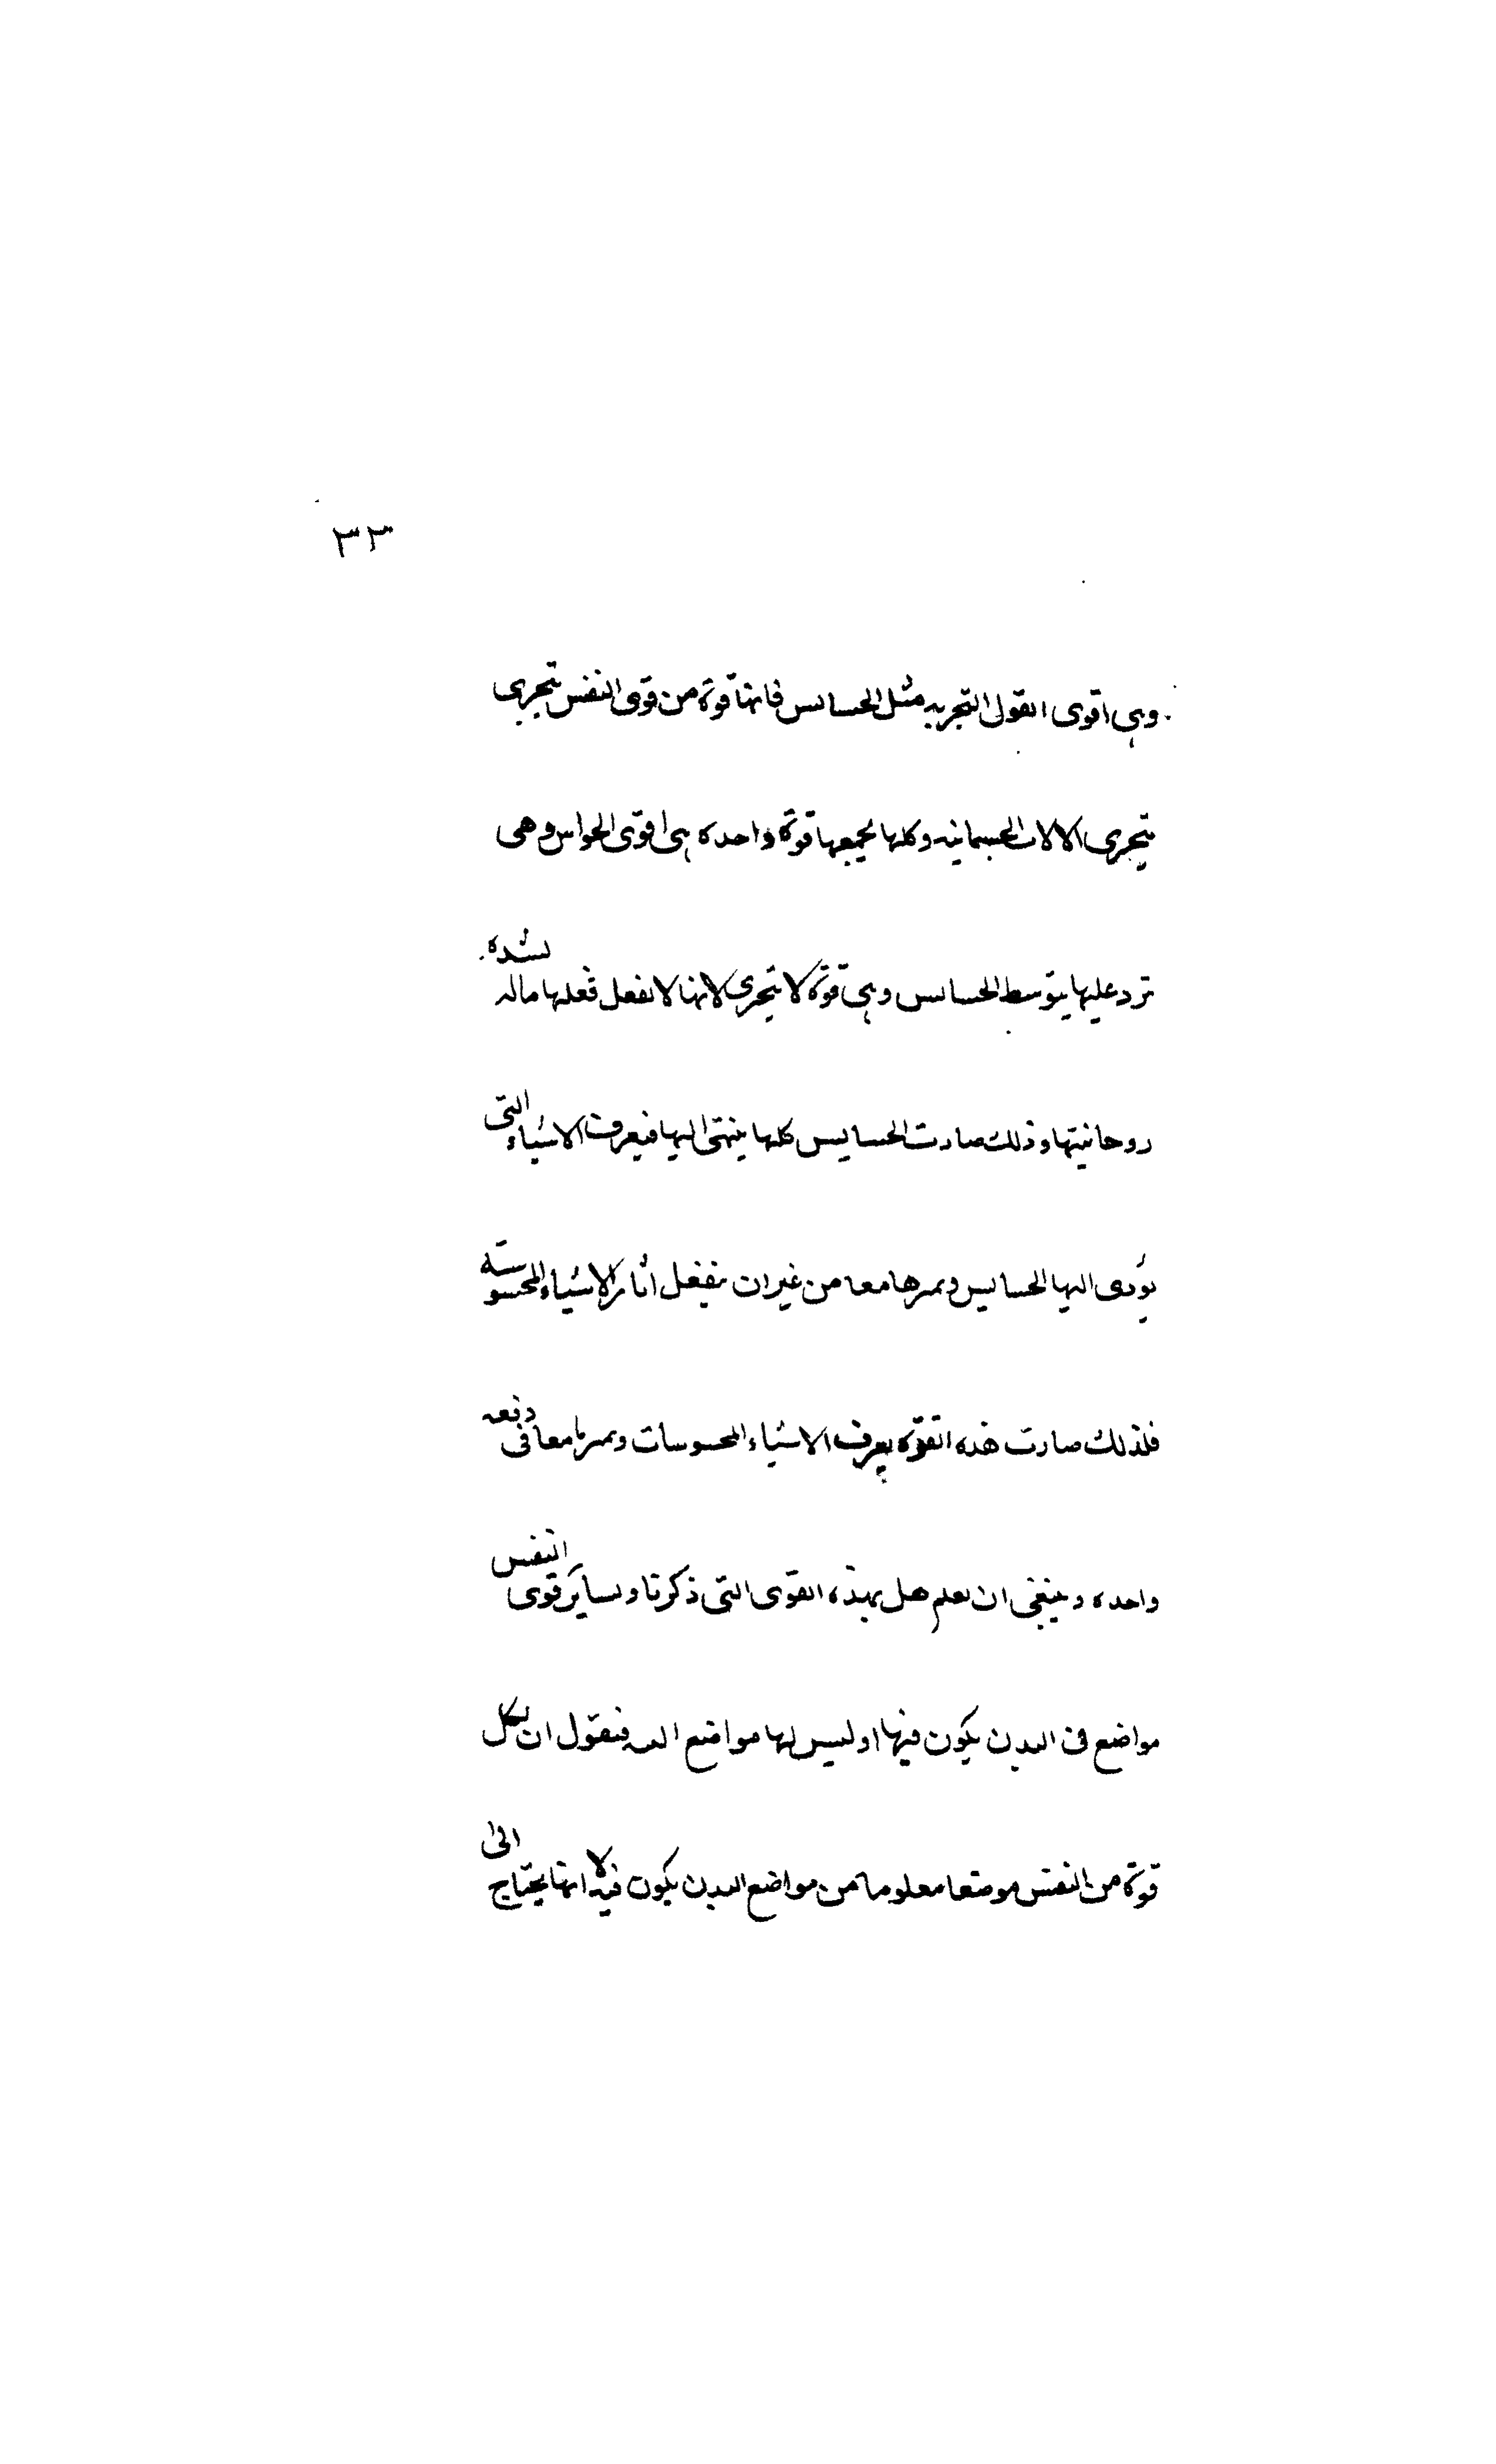 ٣٣
وهى اقوى القول التجربه مثل الحسائس فانها قوة من قوى النفس تتجرى
بتجرى الالات الجسمانيه وكلها يجمعها قوة واحدة هى اقوى الحواس وهى
ترد عليها بتوسط الحسائس وهى قوة لا تتجرى لانها لا تفعل فعلها مالة لشدة
روحانيتها وذلك صارت الحسايس كلها ينتهى اليها فيعرف الاشياء التى
يؤدى اليها الحسايس ويميزها معا من غير ان ينفعل اثار الاشياء المحسوسة
فلذلك صارت هذه القوة يعرف الاشياء المحسوسات ويميزها معا فى دفعه
واحدة وينبغى ان نعلم هل بهذه القوى التى ذكرنا ولساير قوى النفس
مواضع فى البدن يكون فيها او ليس لها مواضع البته فنقول ان لكل
قوة من النفس موضعا معلوما من مواضع البدن يكون فيه لا انها يحتاج الى